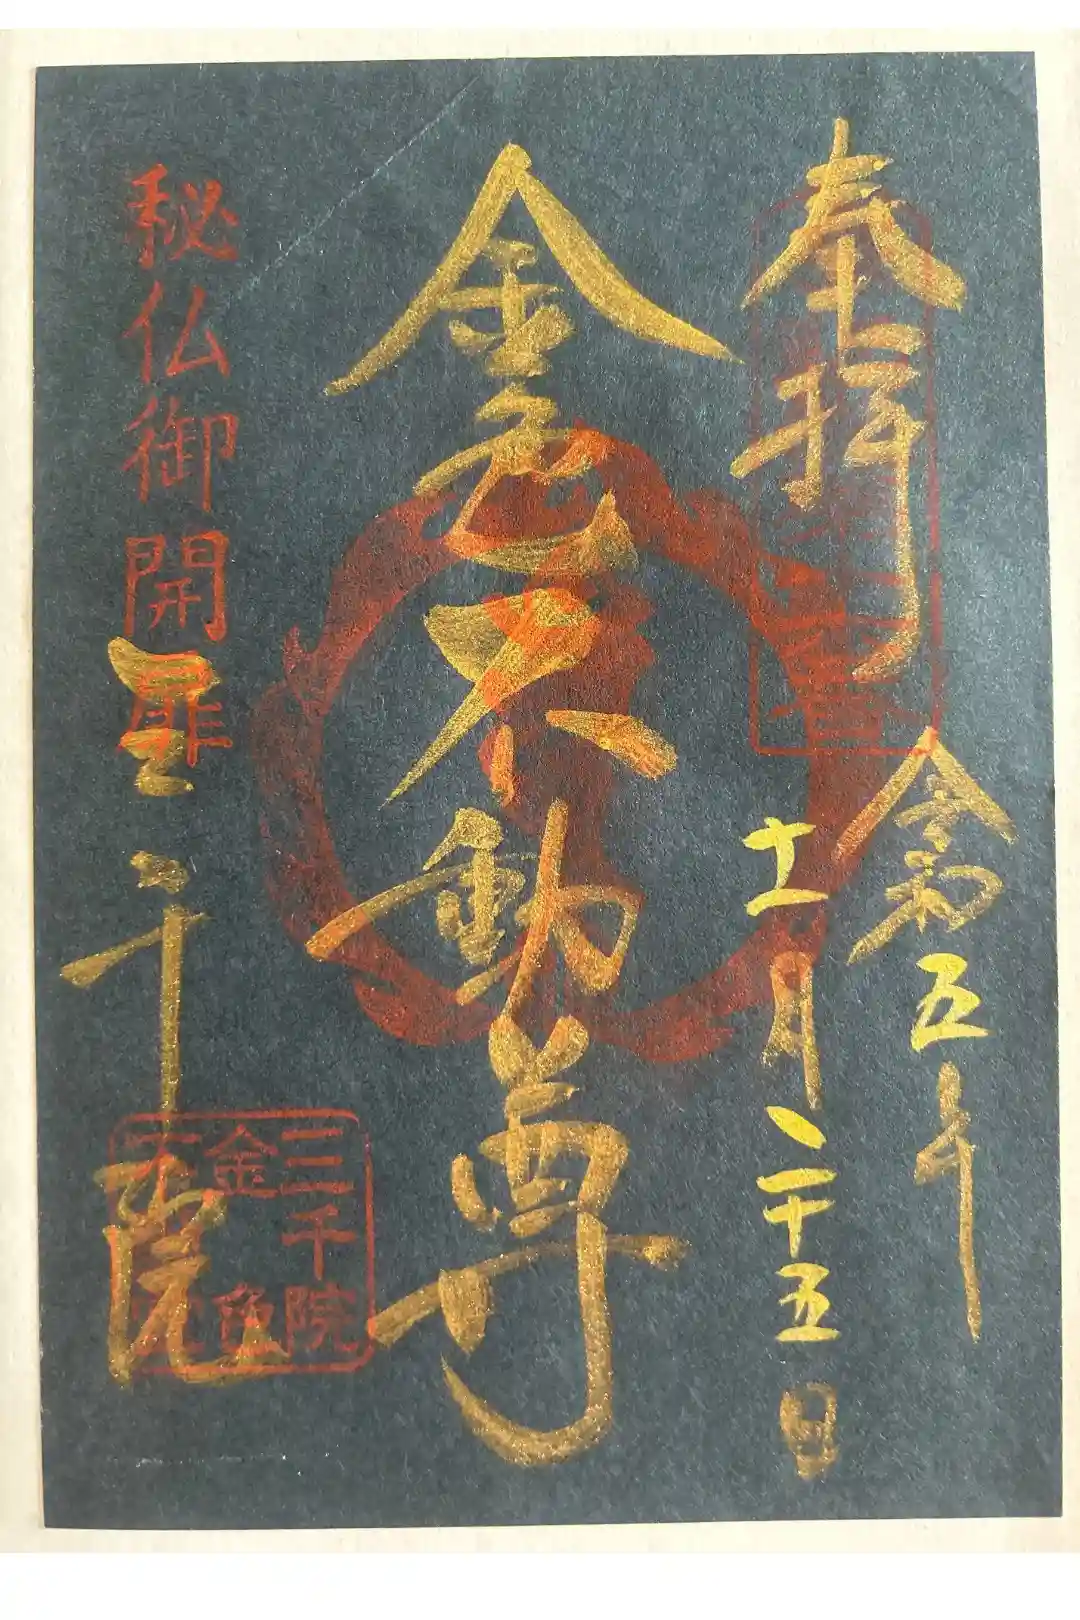 奉拝
令和五年
十一月二十五日
金色不動尊
秘仏御開扉
三千院
三千院
金色